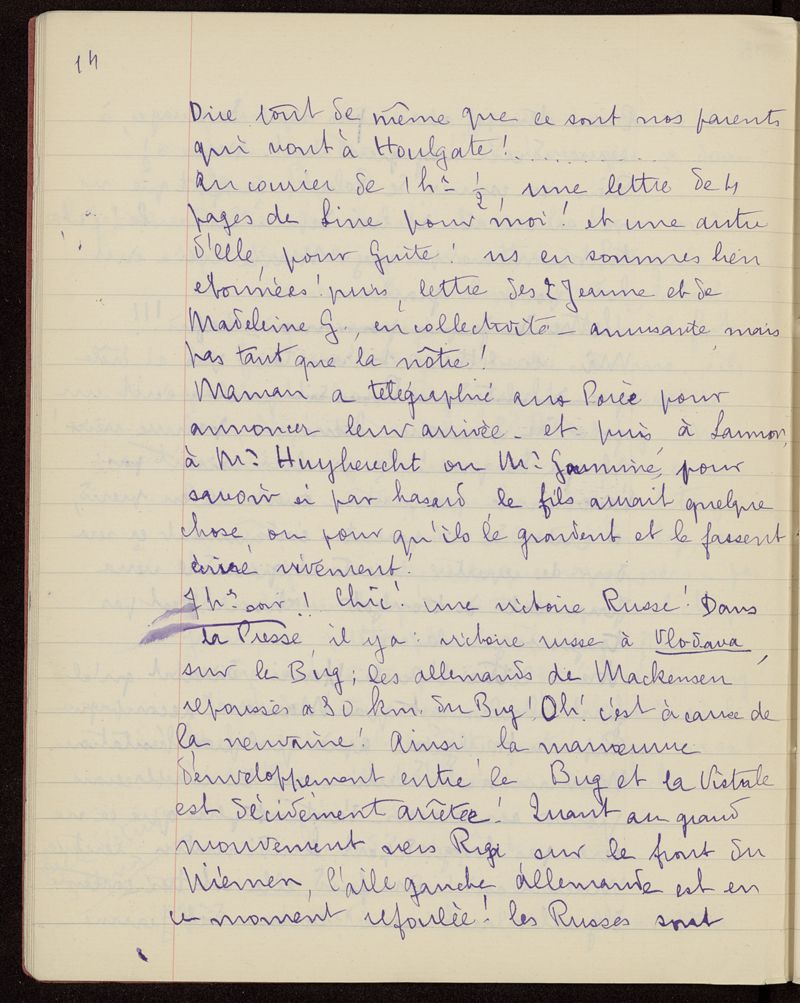 14
Dire tout de même que ce sont nos parents
qui vont à Houlgate ! . . . . . . . . . .
Au courier de 1 hre ½, une lettre de 4
pages de Line pour moi ! et une autre
d'elle pour Guite ! ns en sommes bien
étonnées ! puis, lettre des 2 Jeanne et de
Madeleine G., en collectivité - amusante, mais
pas tant que la nôtre !
Maman a télégraphié aux Porée pour
annoncer leur arrivée - et puis à
à Mr Huyberecht ou Mr pour
savoir si par hasard le fils aurait quelque
chose, ou pour qu'ils le grondent et le fassent
écrire vivement !
7 hrs soir !! Chic ! une victoire Russe ! Dans
la Presse il y a : victoire russe à Vlodava,
sur le Bug ; les allemands de Mackensen
repoussés à 30 km. du Bug ! Oh ! c'est à cause de
la neuvaine ! Ainsi la manœuvre
d'enveloppement entre le Bug et la Vistule
est décidément arrêtée ! Quant au grand
mouvement vers Riga sur le front du
Niémen, l'aile gauche allemande est en
ce moment refoulée ! les Russes sont